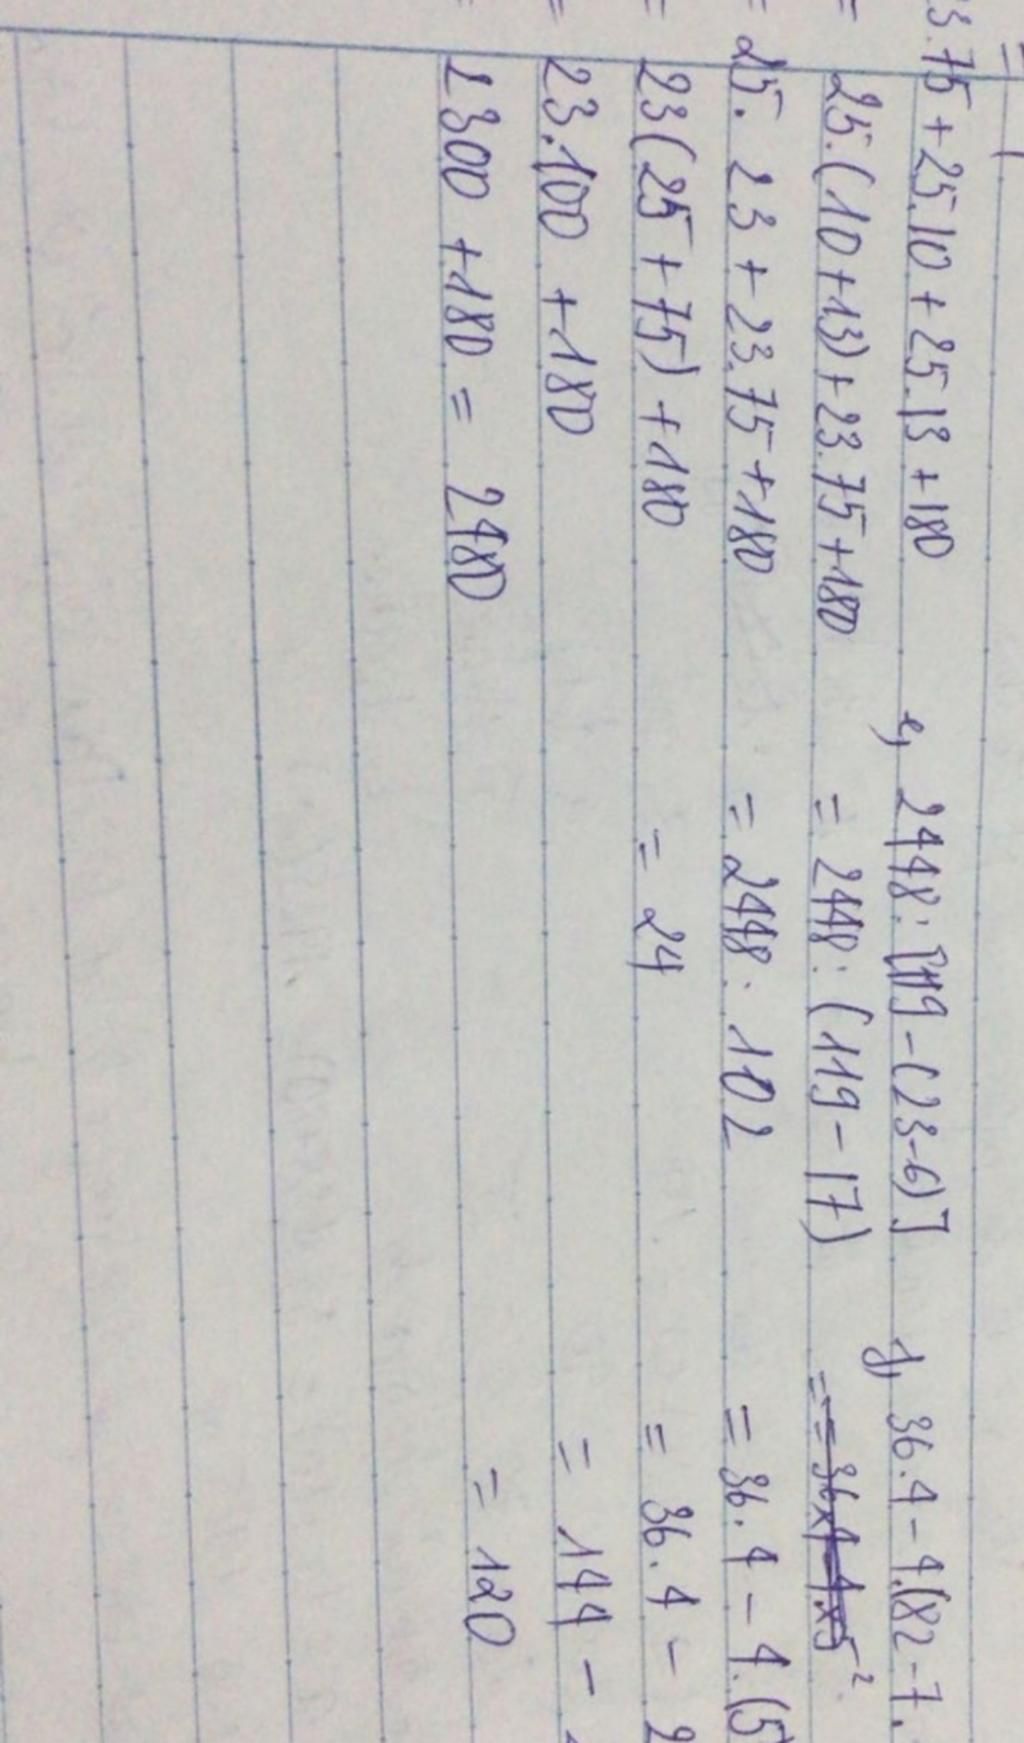 23.75 + 25.10 + 25.13 + 180
= 25.(10+13) + 23.75 + 180
= 25. 23 + 23.75 + 180
= 23(25 + 75) + 180
= 23.100 + 180
= 2300 + 180 = 2480
e, 2448 : [119 - (23-6)]
= 2448 : (119 - 17)
= 2448 : 102
= 24
36.4 - 4.(82 - 7.
= 36.4 - 4.(5
= 36.4 - 2
= 144 -
= 120